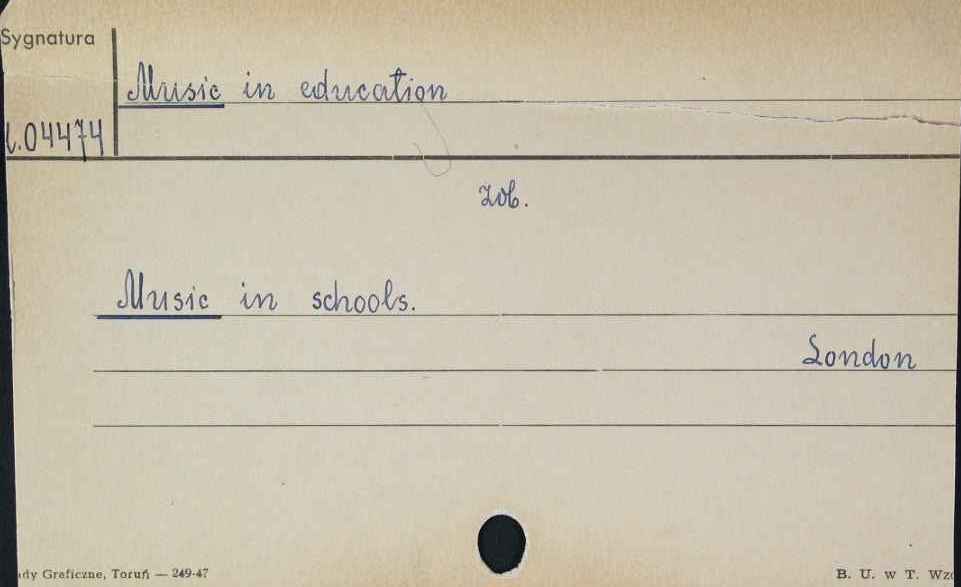 Sygnatura
Music in education
04474
zob.
Music in schools.
London
Graficzne, Toruń — 249-47
B. U. w T.